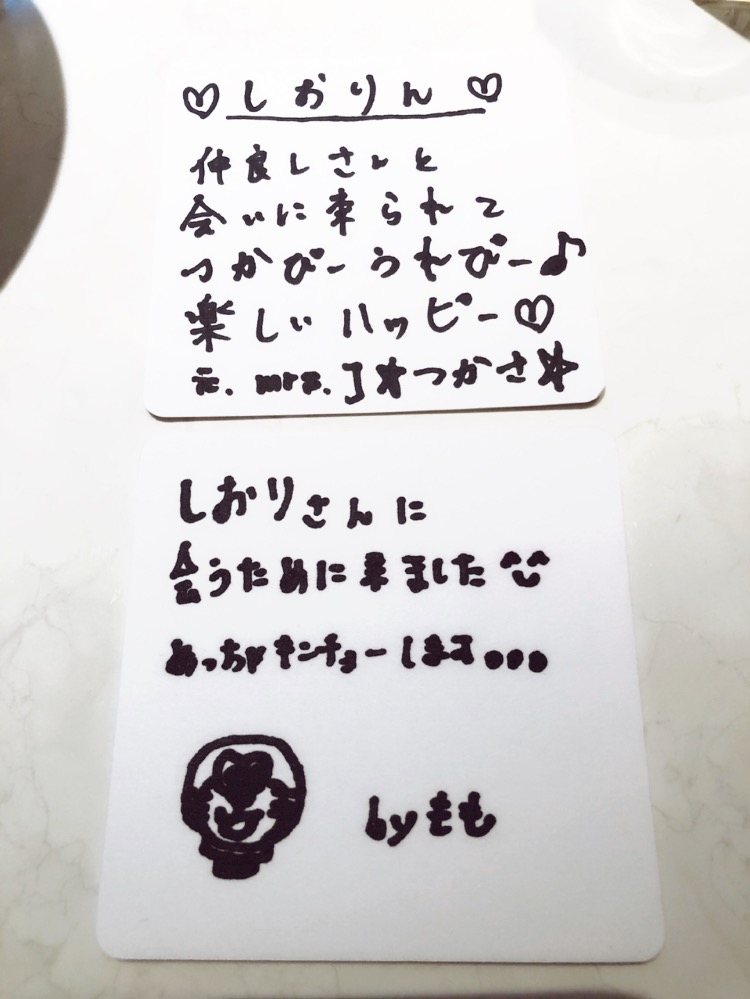 ♡しおりん♡
仲良しさんと
会いに来られて
つかぴーうれぴー♪
楽しいハッピー♡
元. mrs. J★つかさ★
しおりさんに
会うために来ました^^
めっちゃキンチョーします...
byもも